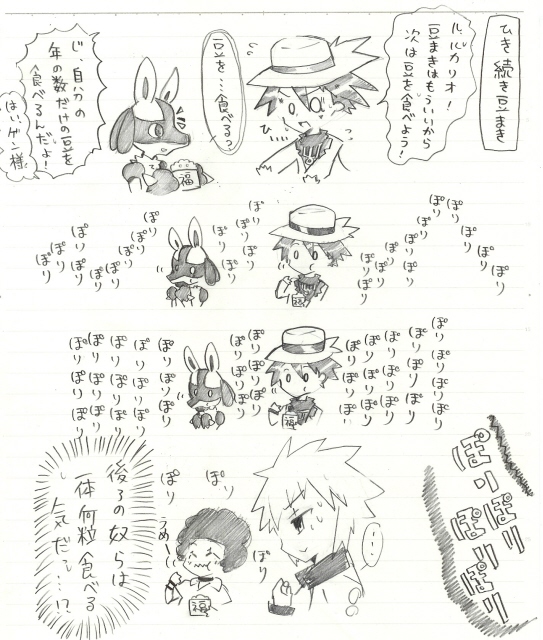 ひき続き豆まき
ル、ルカリオ！
豆まきはもういいから
次は豆を食べよう！
ひいぃ
豆を…食べるっ？
じ、自分の
年の数だけの豆を
食べるんだよ！
はい、ゲン様
福
ぽり ぽり ぽり ぽり ぽり
ぽり ぽり ぽり ぽり ぽり
ぽり ぽり ぽり ぽり
ぽり ぽり ぽり ぽり ぽり
ぽり ぽり ぽり ぽり ぽり
福
ぽりぽりぽりぽり
ぽりぽりぽりぽり
ぽりぽりぽりぽり
ぽりぽりぽりぽり
ぽりぽりぽりぽり
ぽりぽりぽりぽり
ぽりぽりぽりぽり
ぽりぽりぽりぽり
福
ぽりぽり
ぽりぽり
ぽり
…
ぽり
ぽり
ぽり
うめー
福
後ろの奴らは
一体何粒食べる
気だ…!?